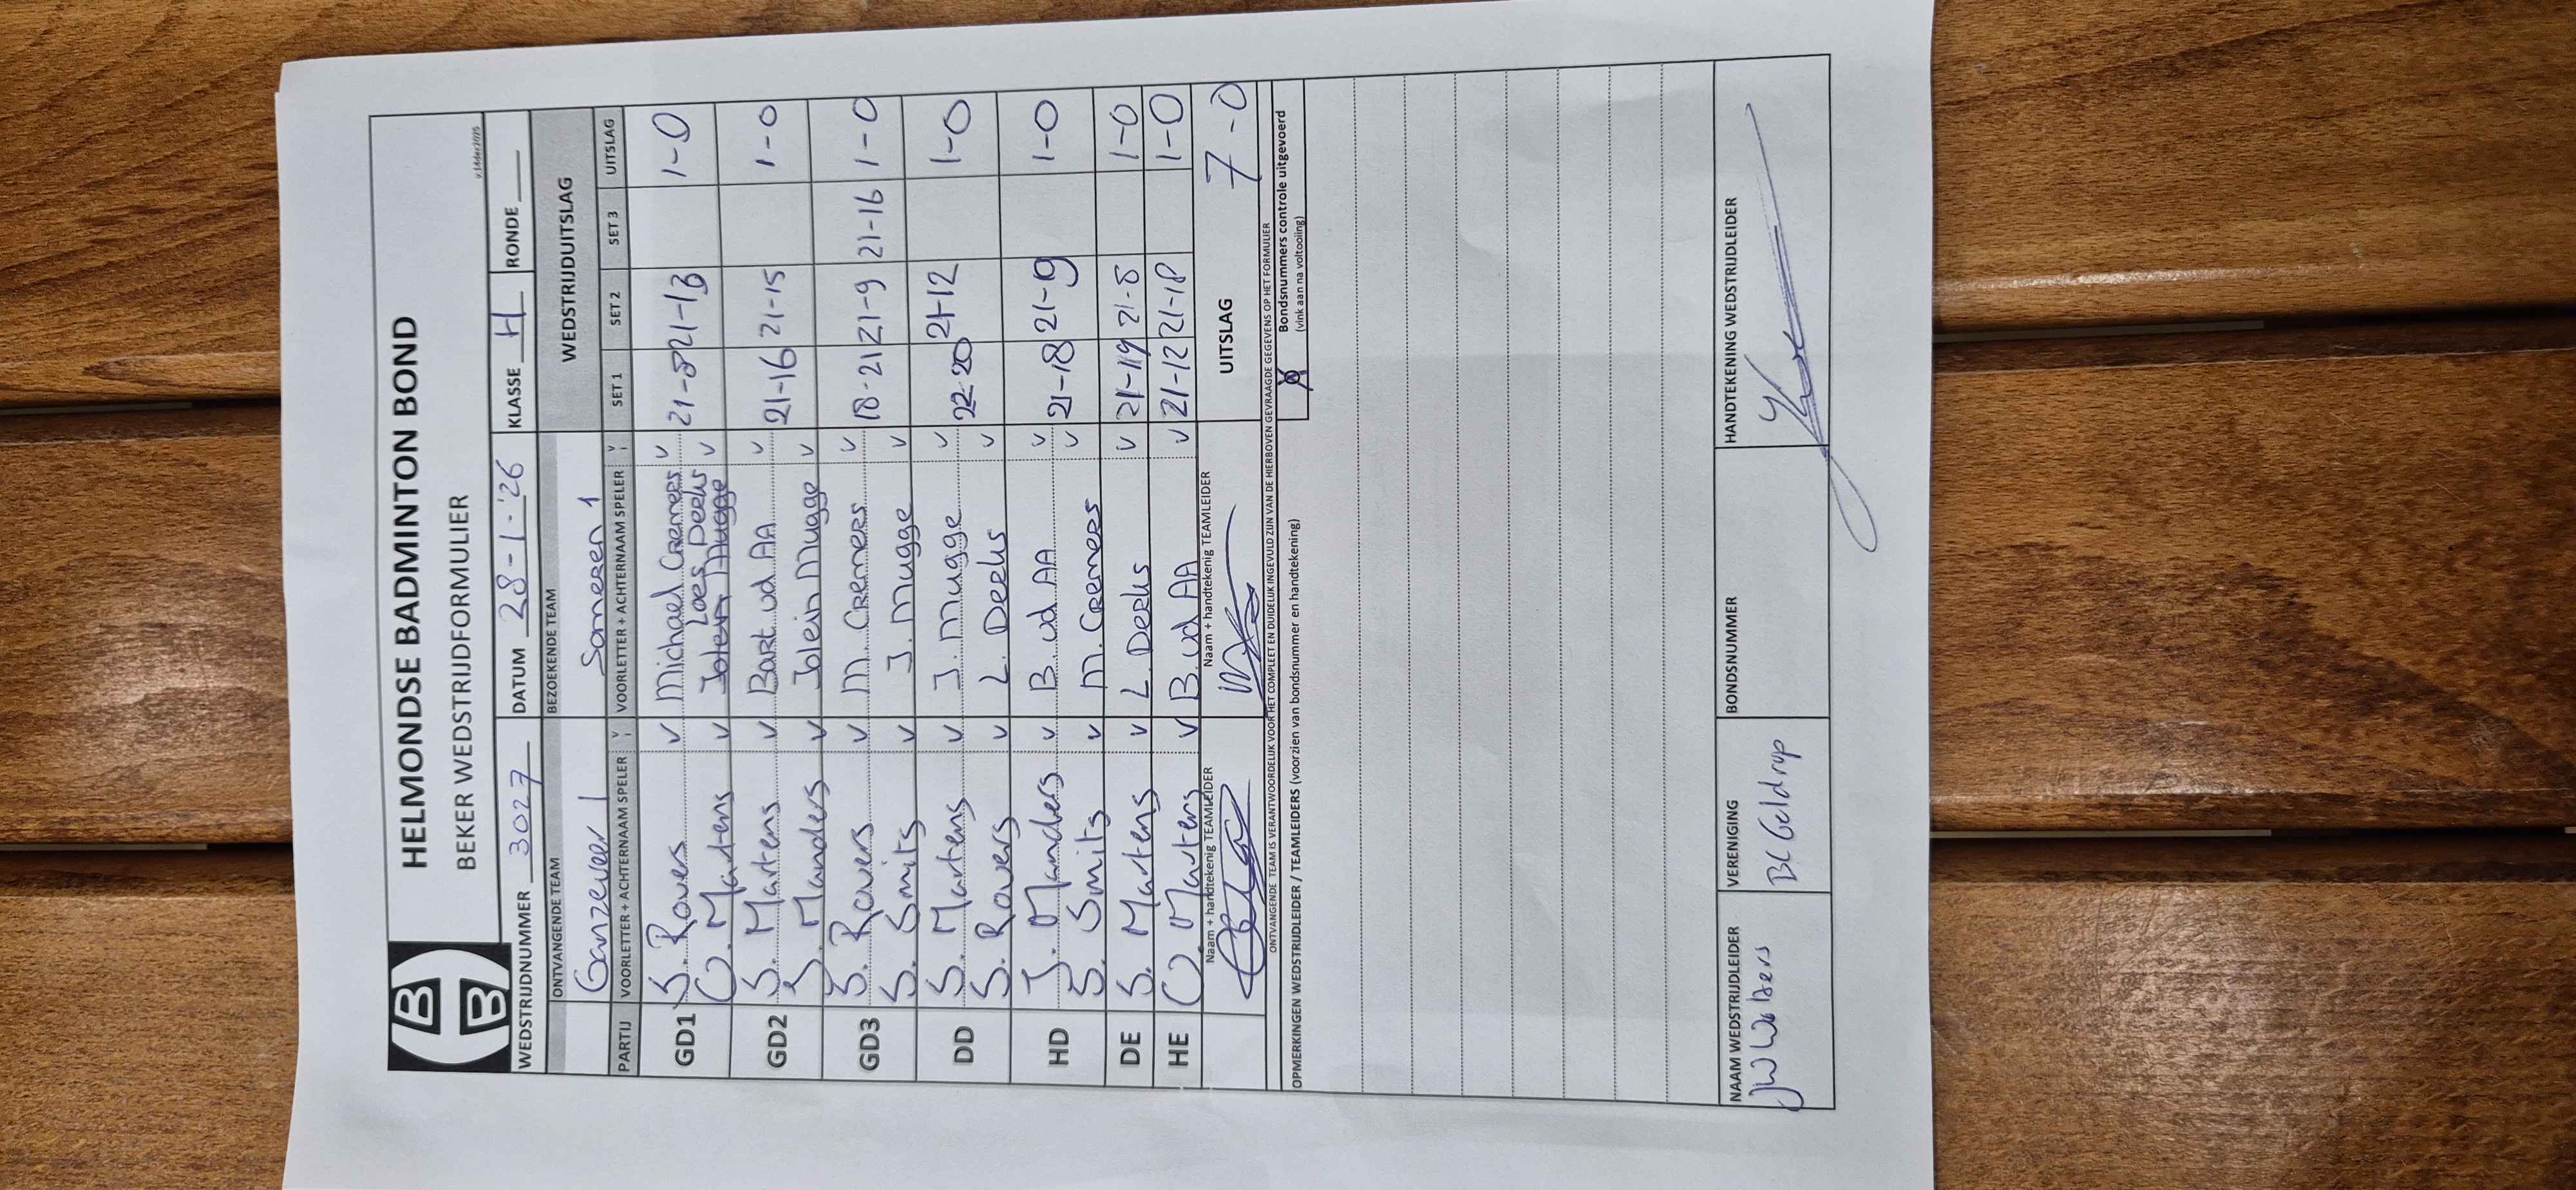 HELMONDSE BADMINTON BOND
BEKER WEDSTRIJDFORMULIER
v.1 Mei 2025
WEDSTRIJDNUMMER 3027 DATUM 28-1-'26 KLASSE H RONDE
ONTVANGENDE TEAM BEZOEKENDE TEAM WEDSTRIJDUITSLAG
Ganzeveer 1 Someren 1
PARTIJ VOORLETTER + ACHTERNAAM SPELER V VOORLETTER + ACHTERNAAM SPELER V SET 1 SET 2 SET 3 UITSLAG
GD1 S. Rovers v Michael Creemers v 21-8 21-13 1-0
Loes Deeks
O. Martens v Jolein Mugge v
GD2 S. Martens v Bart vd AA v 21-16 21-15 1-0
J. Manders v Jolein Mugge v
GD3 S. Rovers v M. Creemers v 18-21 21-9 21-16 1-0
S. Smits v J. Mugge v
DD S. Martens v J. Mugge v 22-20 21-12 1-0
S. Rovers v L. Deeks v
HD J. Manders v B. vd AA v 21-18 21-9 1-0
S. Smits v M. Creemers v
DE S. Martens v L. Deeks v 21-19 21-8 1-0
HE O. Martens v B. vd AA v 21-12 21-18 1-0
Naam + handtekenig TEAMLEIDER Naam + handtekenig TEAMLEIDER UITSLAG 7-0
ONTVANGENDE TEAM IS VERANTWOORDELIJK VOOR HET COMPLEET EN DUIDELIJK INGEVULD ZIJN VAN DE HIERBOVEN GEVRAAGDE GEGEVENS OP HET FORMULIER
OPMERKINGEN WEDSTRIJDLEIDER / TEAMLEIDERS (voorzien van bondsnummer en handtekening) X Bondsnummers controle uitgevoerd
(vink aan na voltooiing)
NAAM WEDSTRIJDLEIDER VERENIGING BONDSNUMMER HANDTEKENING WEDSTRIJDLEIDER
JW Wolters BC Geldrop